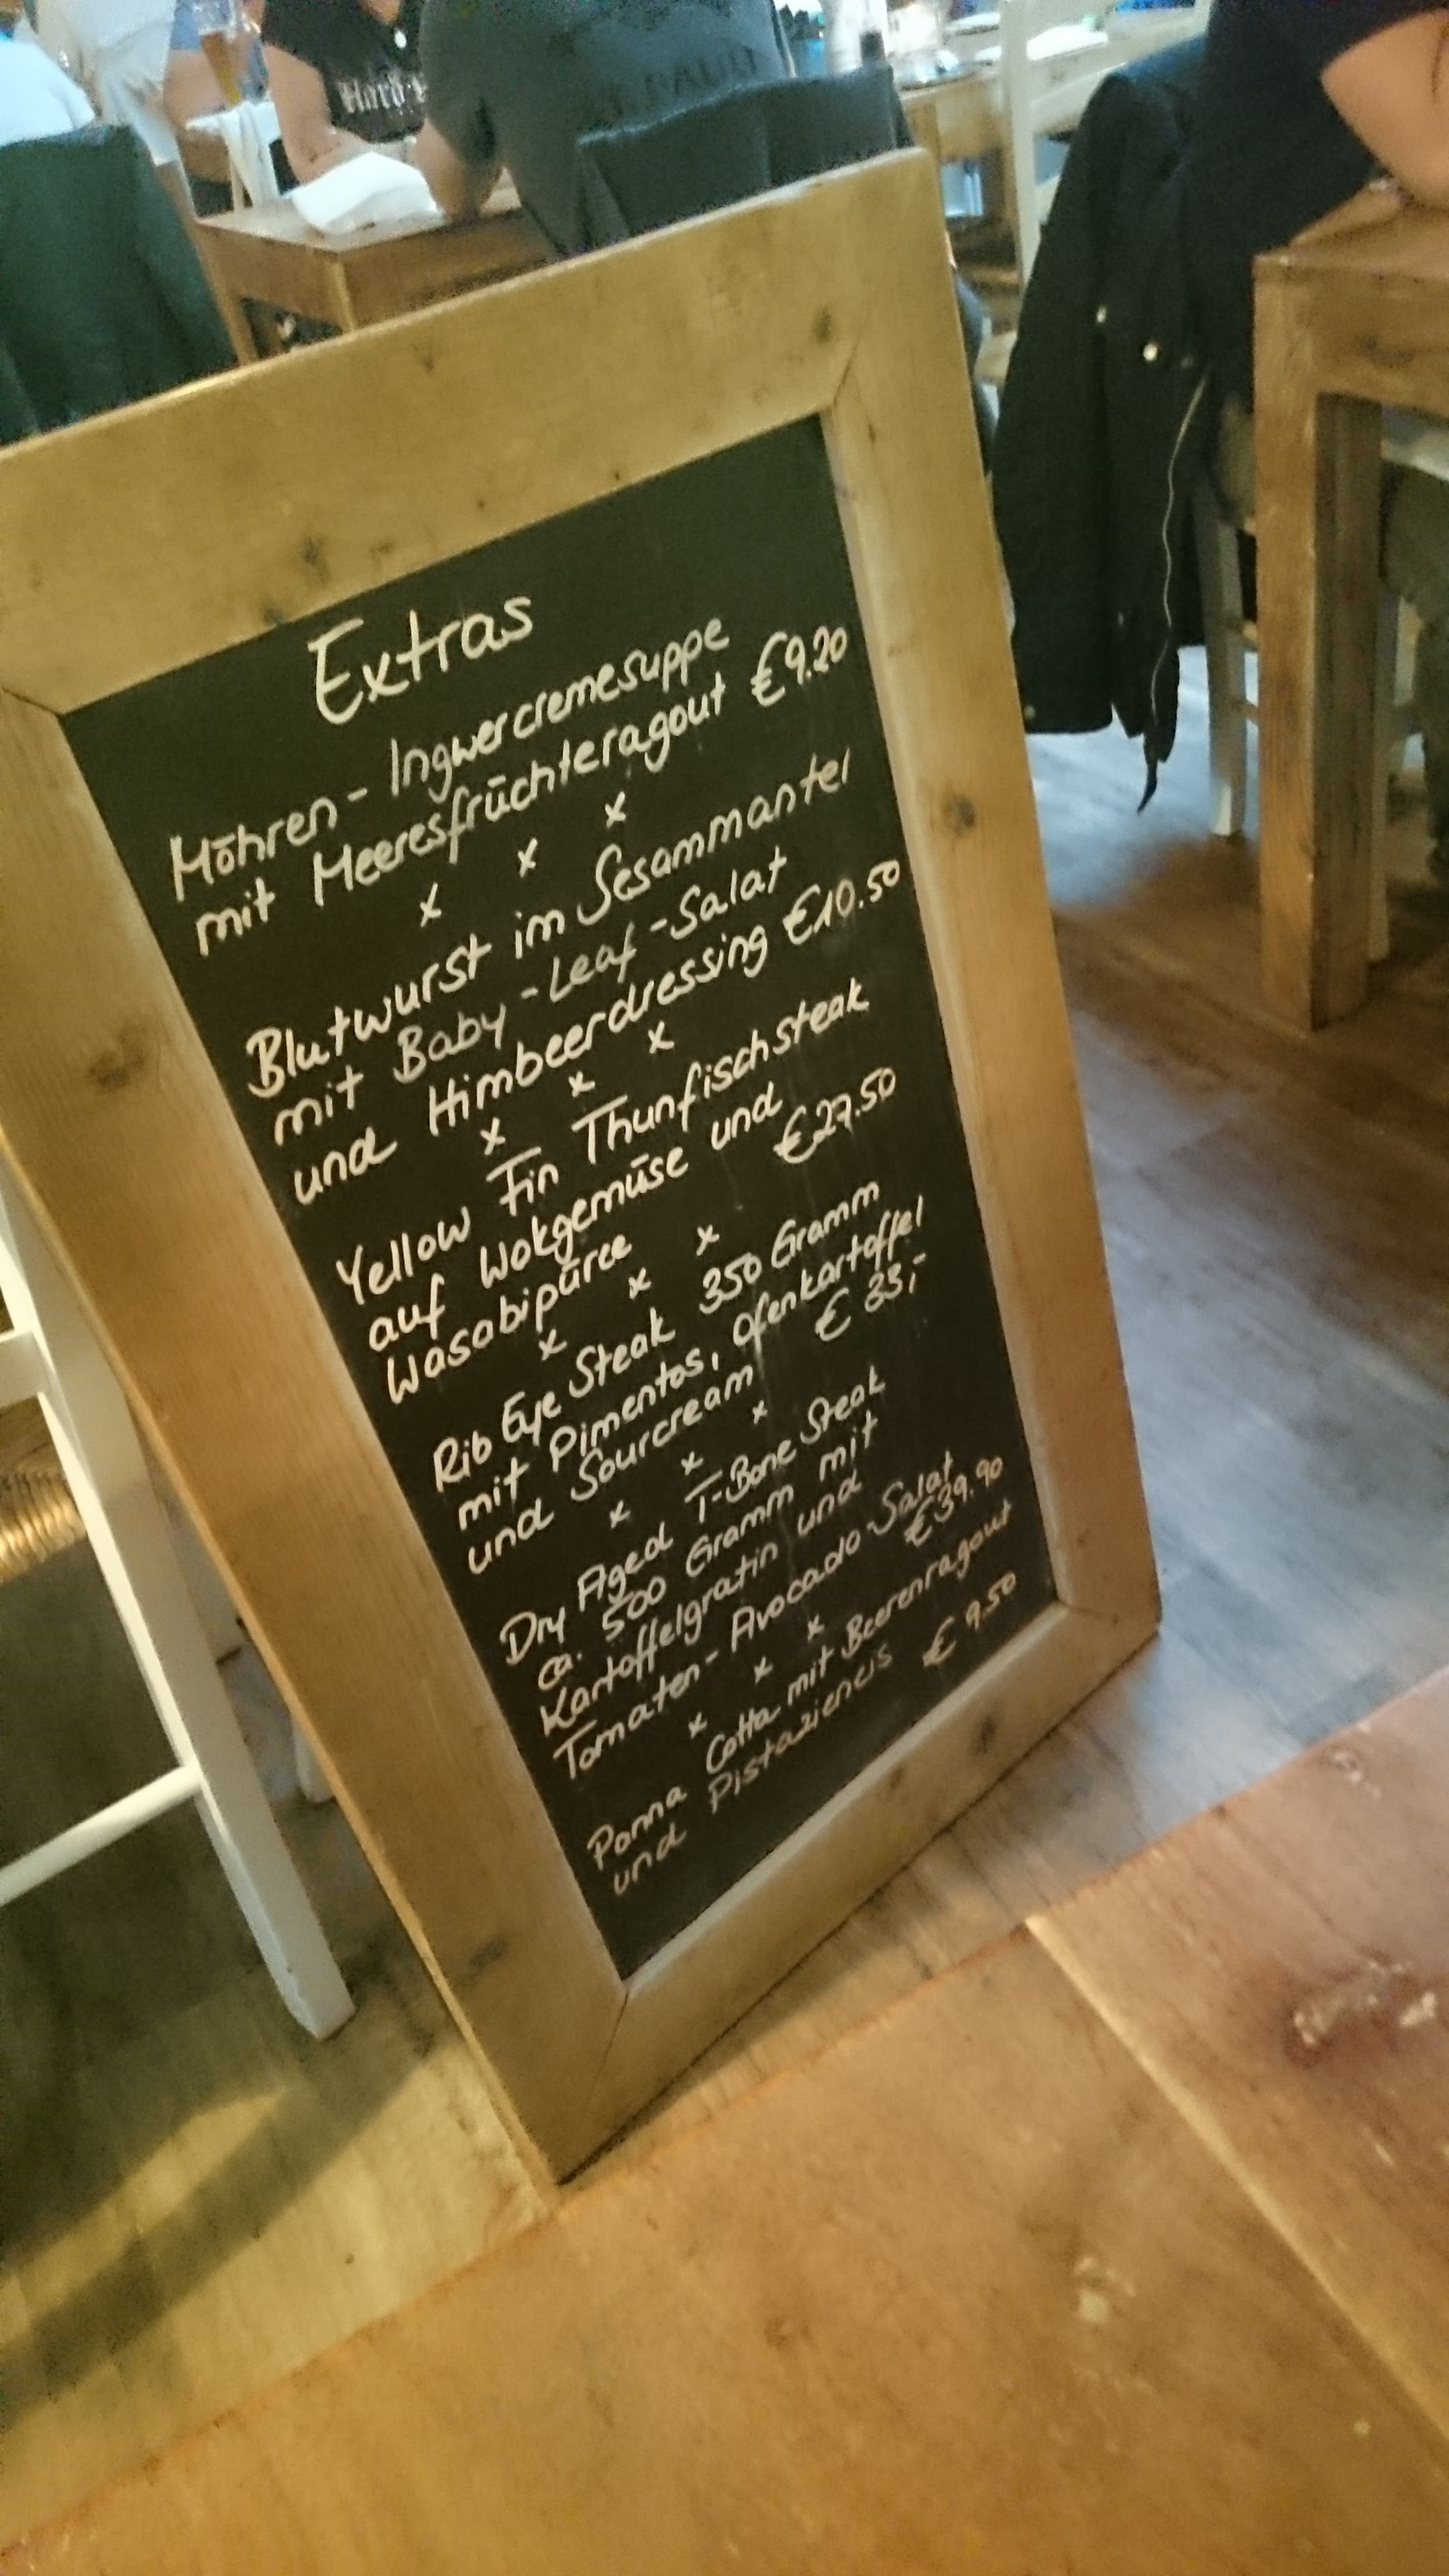 Extras
Möhren-Ingwercremesuppe
mit Meeresfrüchteragout €9.20
x x x
Blutwurst im Sesammantel
mit Baby-Leaf-Salat
und Himbeerdressing €10.50
x x x
Yellow Fin Thunfischsteak
auf Wokgemüse und
Wasabipüree €27.50
x x x
Rib Eye Steak 350 Gramm
mit Pimentos, Ofenkartoffel
und Sourcream € 33,-
x x x
Dry Aged T-Bone Steak
ca. 500 Gramm mit
Kartoffelgratin und
Tomaten-Avocado-Salat
€39.90
x x x
Panna Cotta mit Beerenragout
und Pistazieneis € 9.50